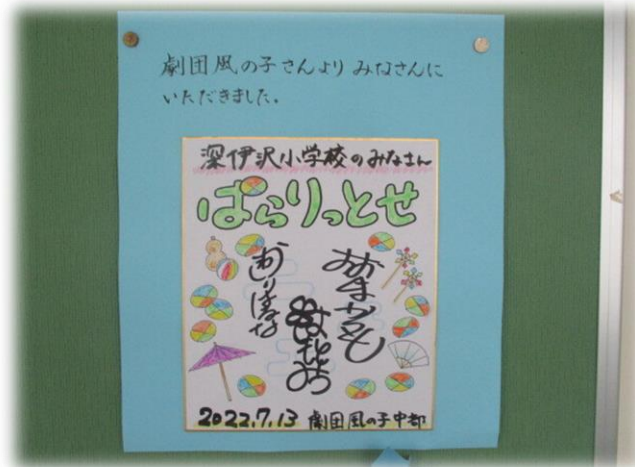 劇団風の子さんより みなさんに
いただきました。
深伊沢小学校のみなさん
ぱらりっとせ
2022.7.13 劇団風の子中部